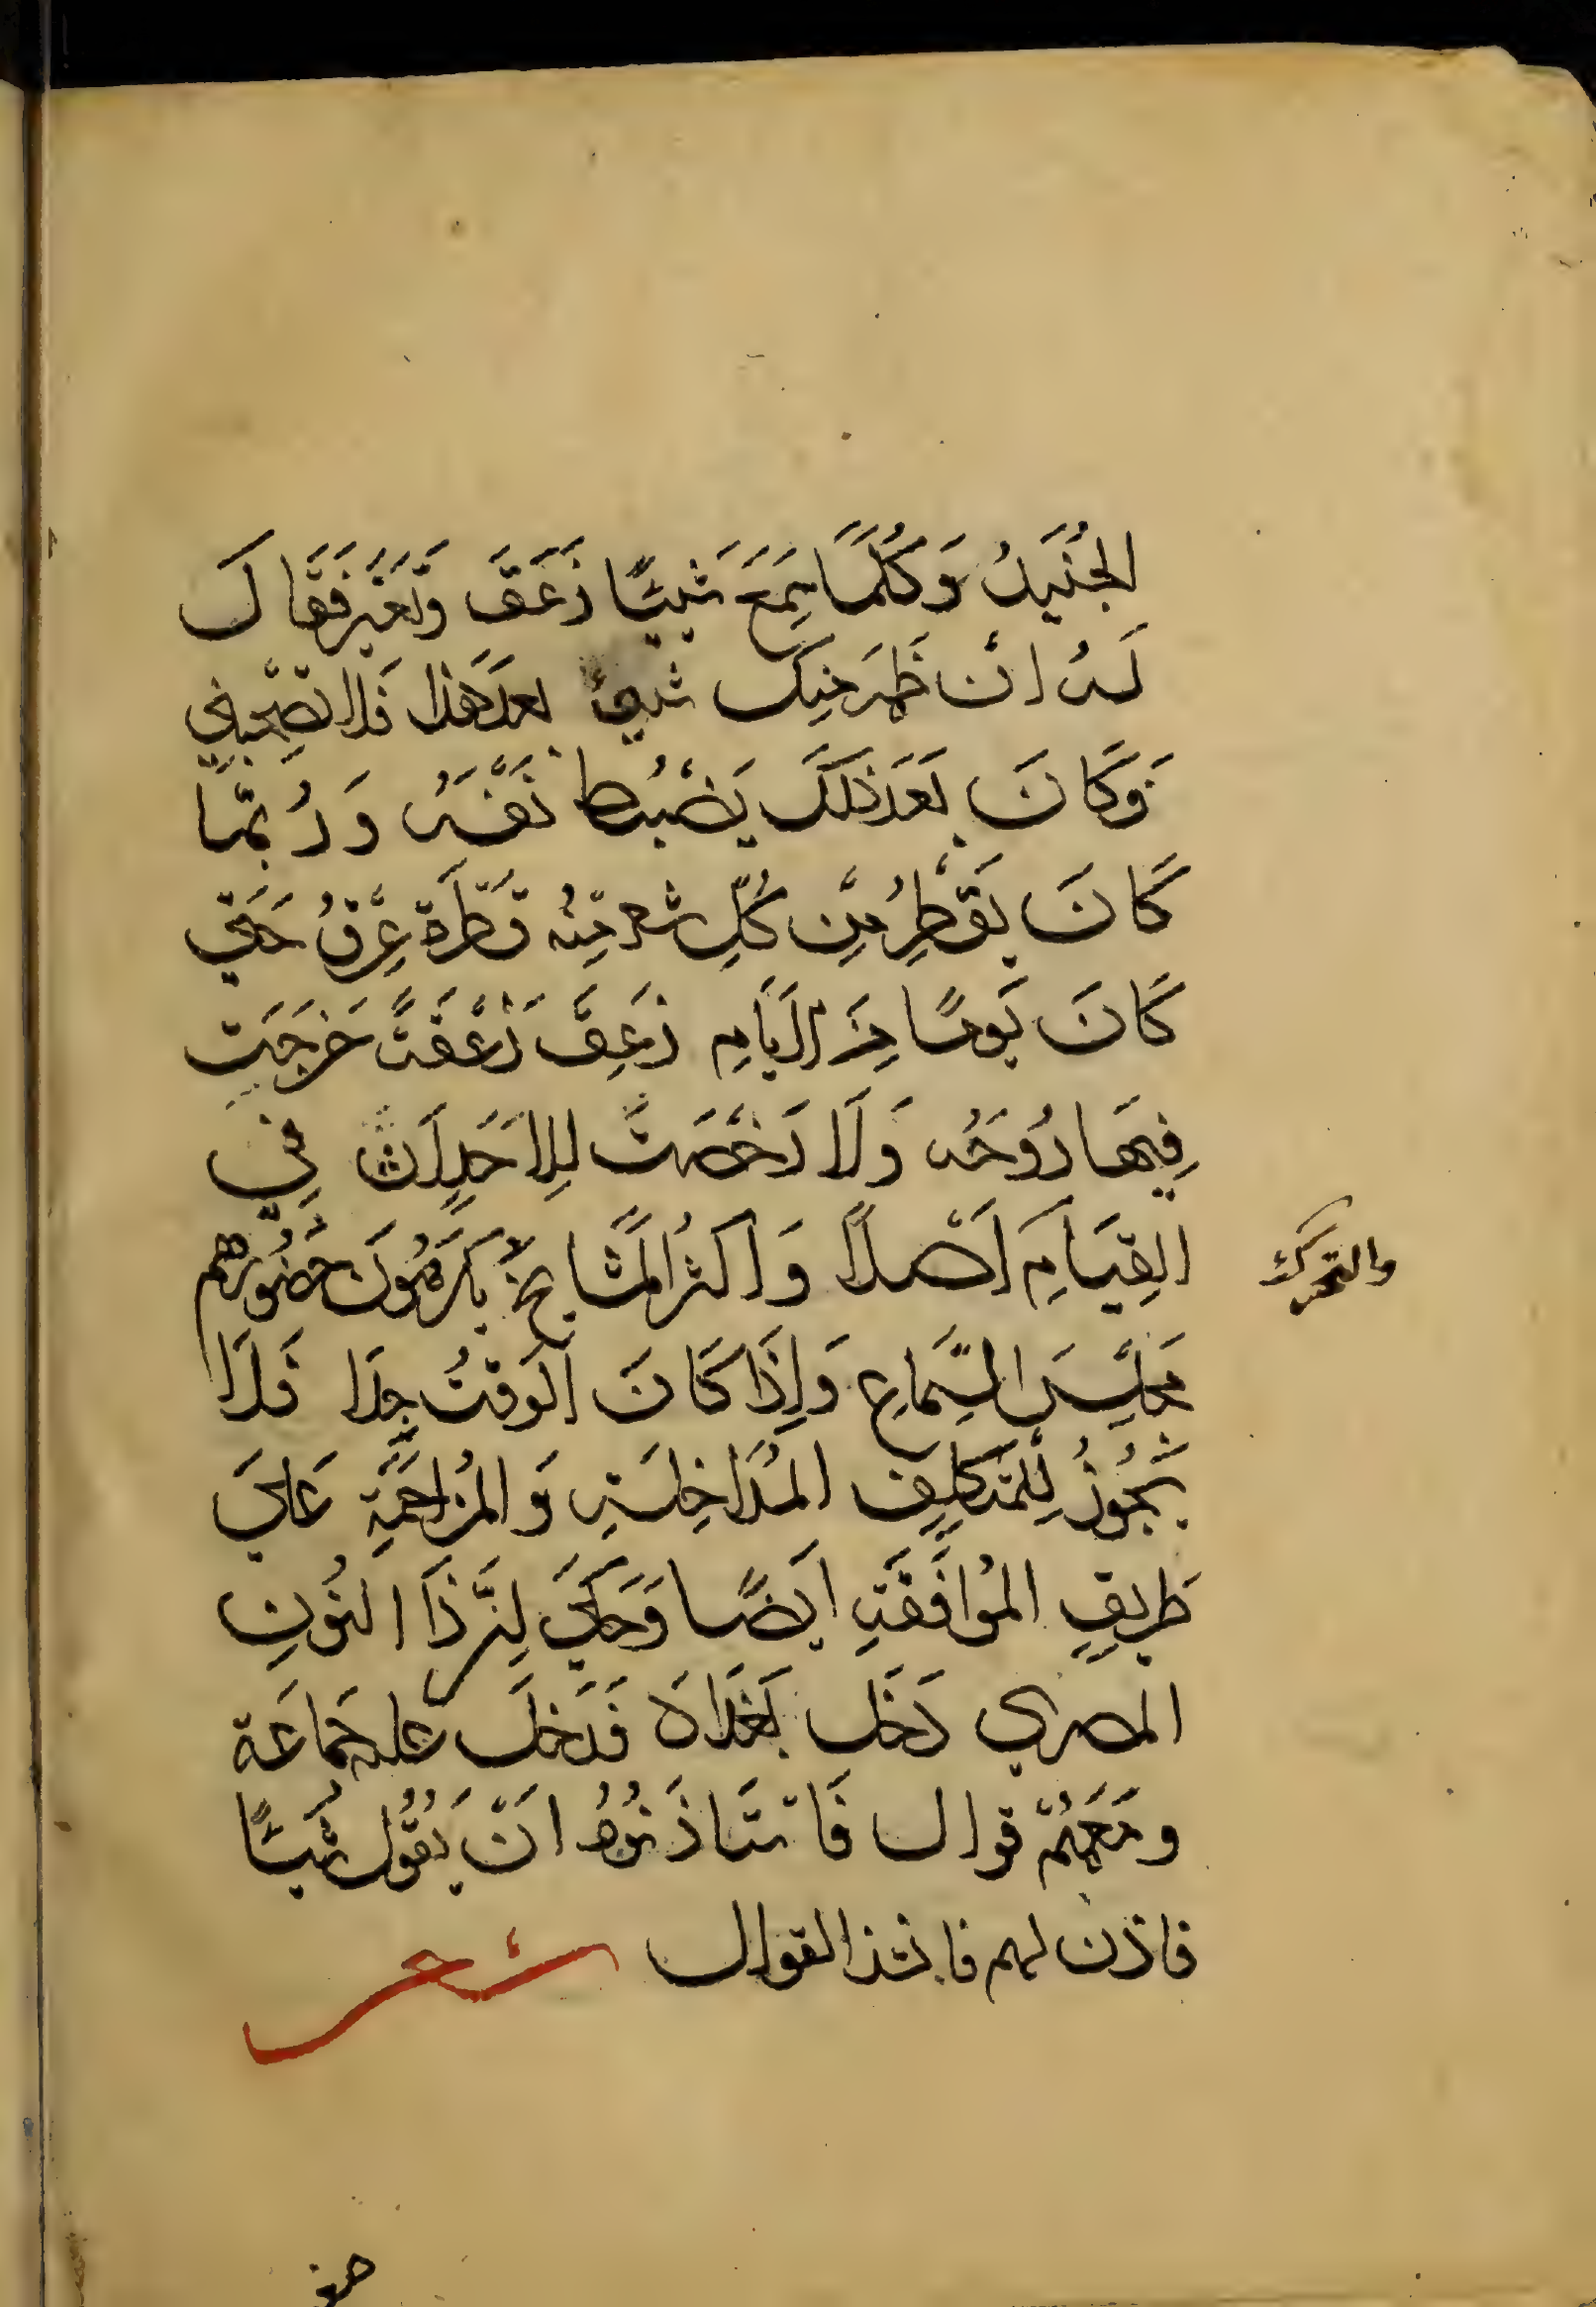 الجُنَيدُ وَكُلَّمَا سَمِعَ شَيئًا زَعَقَ وَتَغَيَّرَ فَقَالَ
لَهُ ان ظَهَرَ مِنكَ شيئ بعدَ هَذا فَلا تَصحَبني
وَكَانَ بَعدَ ذلكَ يَضْبُط نَفْسَه وَرُبَّمَا
كَانَ يَقْطُرُ مِن كُلِّ شعر مِنهُ قَطرَة عِرْقُ حَتي
كَانَ يَومًا مِنَ الاَيَامِ زَعِقَ زَعْقَتً خَرجَت
فِيهَا رُوحُه وَلَا رَخْصَتَ لِلاحدَاث في
القِيَامِ اَصْلًا وَاكثرُ المشَايخ يَكرَهُونَ حضُورهم
والتحرك
مَجلِسَ السَّمَاعِ وَاِذَا كَانَ الوَقتُ جِدَا فَلَا
يَجُوزُ لِلْمُتَكلِف المُدَاخِلَتِ وَالمُزاحَمَةِ عَلَي
طَريقِ المُوَافَقَتِ ايضًا وَحكي اِنَّ ذَا النُونِ
المصري دَخَل بَغدَاد فَدَخلَ عليه جَمَاعَة
ومَعَهُمْ قوال فَاستَاذَنُوهُ اَنْ يَقُول شَيئًا
فاذن لهم فانشد القوال شعر
صغر